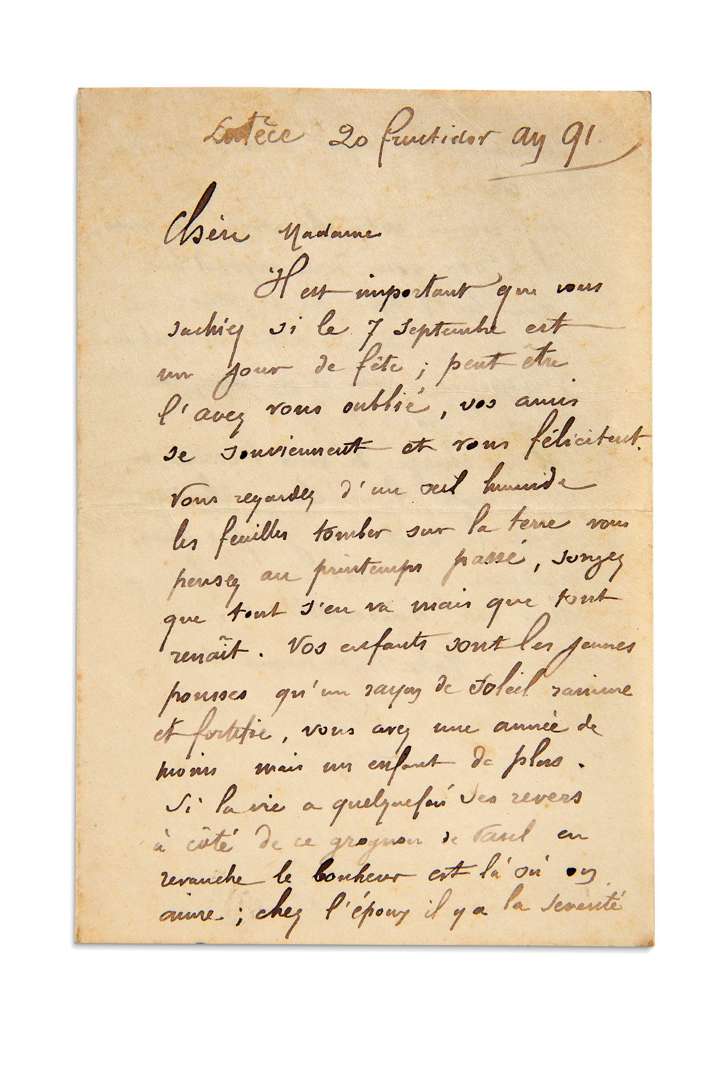 Lutèce 20 fructidor an 91.
Chère Madame
Il est important que vous
sachiez si le 7 septembre est
un jour de fête ; peut être
l'avez vous oublié, vos amis
se souviennent et vous félicitent.
Vous regardez d'un œil humide
les feuilles tomber sur la terre vous
pensez au printemps passé, songez
que tout s'en va mais que tout
renaît. Vos enfants sont les jeunes
pousses qu'un rayon de soleil ranime
et fortifie, vous avez une année de
moins mais un enfant de plus.
Si la vie a quelquefois ses revers
à côté de ce grognon de Paul en
revanche le bonheur est là où on
aime ; chez l'époux il y a la sévérité